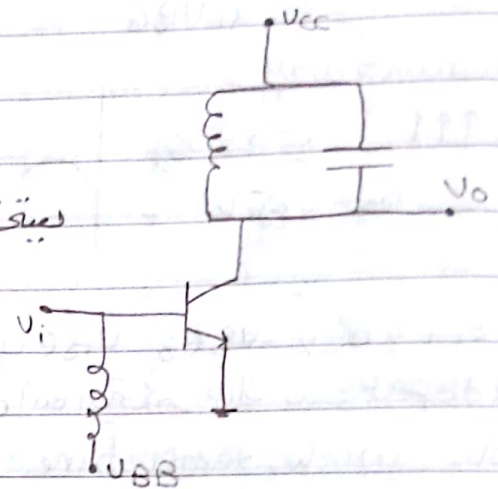 Vcc
Vo
Vi
VBB